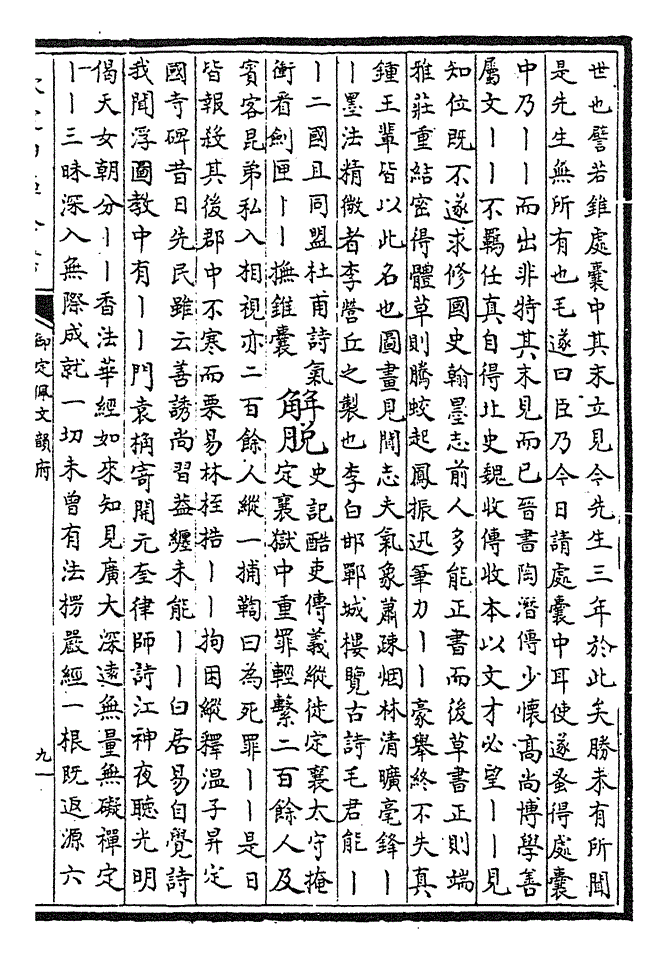 世也譬若錐處囊中其末立見今先生三年於此矣勝未有所聞
是先生無所有也毛遂曰臣乃今日請處囊中耳使遂蚤得處囊
中乃丨丨而出非特其末見而已晉書陶潛傳少懷高尚博學善
屬文丨丨不羈任真自得北史魏收傳收本以文才必望丨丨見
知位既不遂求修國史翰墨志前人多能正書而後草書正則端
雅莊重結密得體草則騰蛟起鳳振迅筆力丨丨豪舉終不失真
鍾王輩皆以此名也圖畫見聞志夫氣象蕭疎烟林清曠毫鋒丨
丨墨法精微者李營丘之製也李白邯鄲城樓覽古詩毛君能丨
丨二國且同盟杜甫詩氣
衝看劍匣丨丨撫錐囊
解脫
史記酷吏傳義縱徙定襄太守掩
定襄獄中重罪輕繫二百餘人及
賓客昆弟私入相視亦二百餘人縱一捕鞫曰為死罪丨丨是日
皆報殺其後郡中不寒而栗易林桎梏丨丨拘囚縱釋溫子昇定
國寺碑昔日先民雖云善誘尚習益纏未能丨丨白居易自覺詩
我聞浮圖教中有丨丨門袁桷寄開元奎律師詩江神夜聽光明
偈天女朝分丨丨香法華經如來知見廣大深遠無量無礙禪定
丨丨三昧深入無際成就一切未曾有法楞嚴經一根既返源六
御定佩文韻府
九一